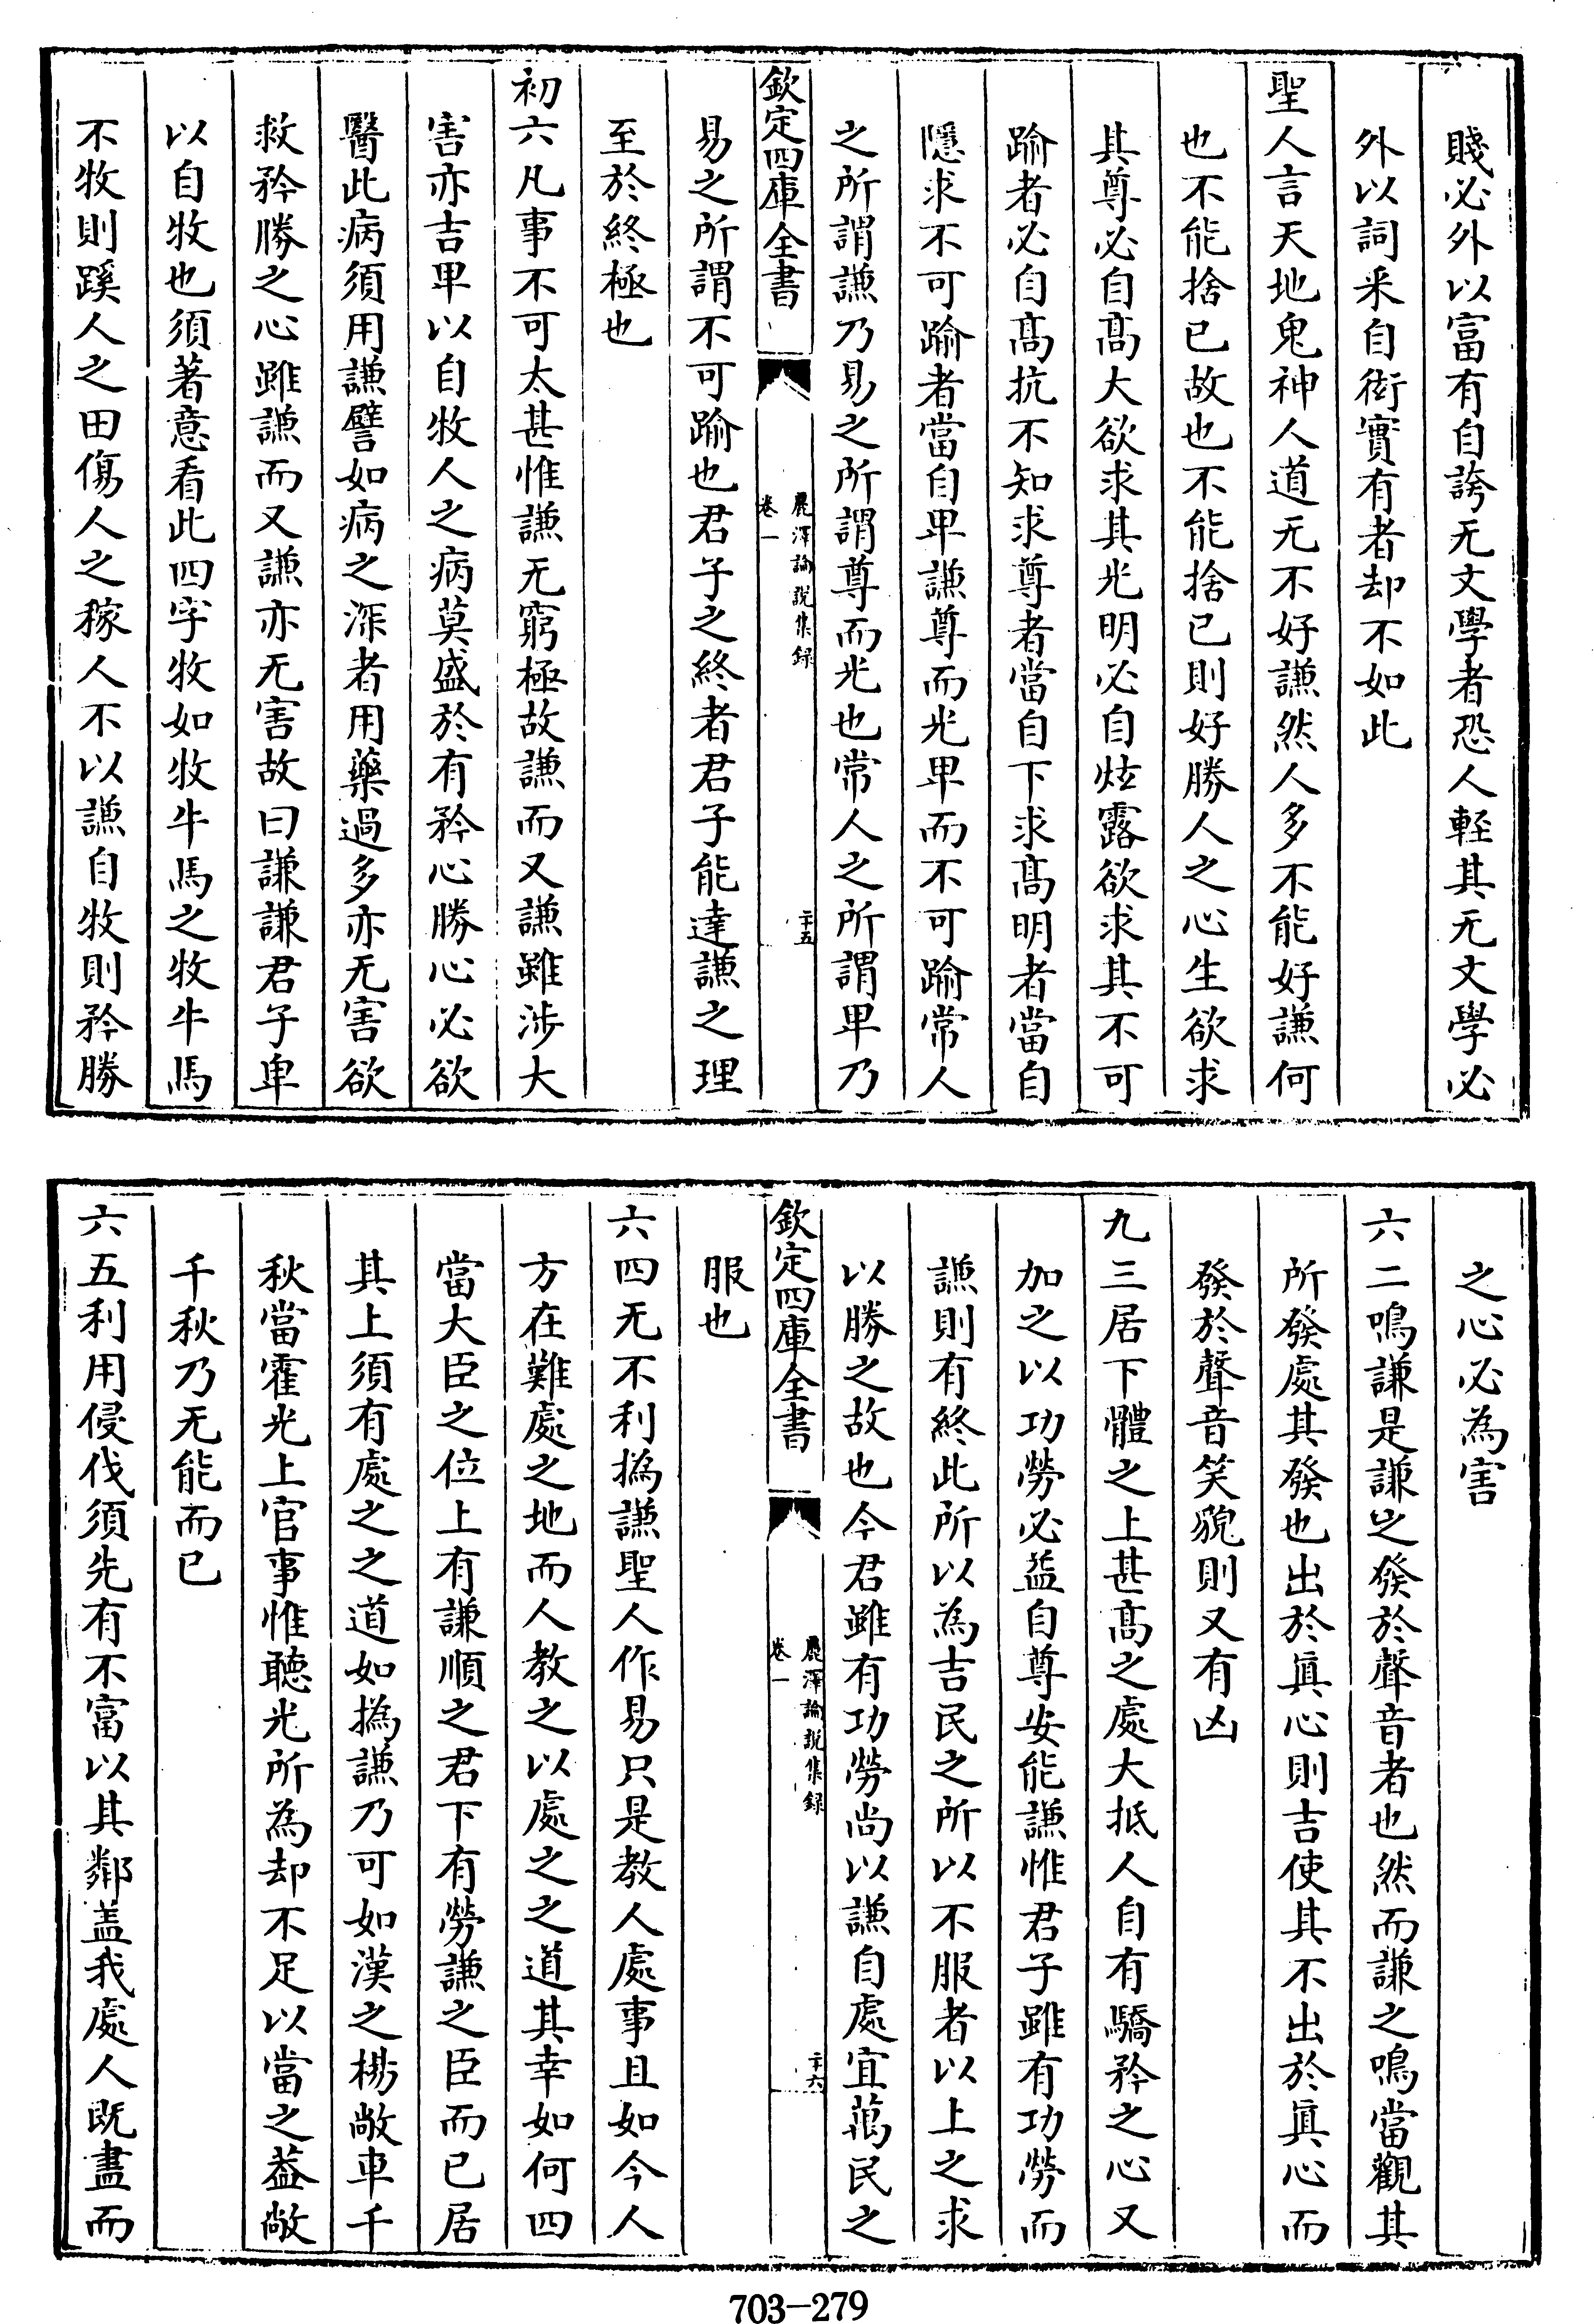 賤必外以富有自誇无文學者恐人輕其无文學必
外以詞采自衒實有者却不如此
聖人言天地鬼神人道无不好謙然人多不能好謙何
也不能捨已故也不能捨已則好勝人之心生欲求
其尊必自髙大欲求其光明必自炫露欲求其不可
踰者必自髙抗不知求尊者當自下求髙明者當自
隱求不可踰者當自卑謙尊而光卑而不可踰常人
之所謂謙乃易之所謂尊而光也常人之所謂卑乃
欽定四庫全書
麗澤論說集録
卷一
二十五
易之所謂不可踰也君子之終者君子能達謙之理
至於終極也
初六凡事不可太甚惟謙无窮極故謙而又謙雖涉大
害亦吉卑以自牧人之病莫盛於有矜心勝心必欲
醫此病須用謙譬如病之深者用藥過多亦无害欲
救矜勝之心雖謙而又謙亦无害故曰謙謙君子卑
以自牧也須著意看此四字牧如牧牛馬之牧牛馬
不牧則蹊人之田傷人之稼人不以謙自牧則矜勝
之心必為害
六二鳴謙是謙之發於聲音者也然而謙之鳴當觀其
所發處其發也出於眞心則吉使其不出於眞心而
發於聲音笑貌則又有凶
九三居下體之上甚髙之處大抵人自有驕矜之心又
加之以功勞必益自尊安能謙惟君子雖有功勞而
謙則有終此所以為吉民之所以不服者以上之求
以勝之故也今君雖有功勞尚以謙自處宜萬民之
欽定四庫全書
麗澤論說集録
卷一
二十六
服也
六四无不利撝謙聖人作易只是教人處事且如今人
方在難處之地而人教之以處之之道其幸如何四
當大臣之位上有謙順之君下有勞謙之臣而已居
其上須有處之之道如撝謙乃可如漢之楊敞車千
秋當霍光上官事惟聽光所為却不足以當之蓋敞
千秋乃无能而已
六五利用侵伐須先有不富以其鄰盖我處人既盡而
703-279